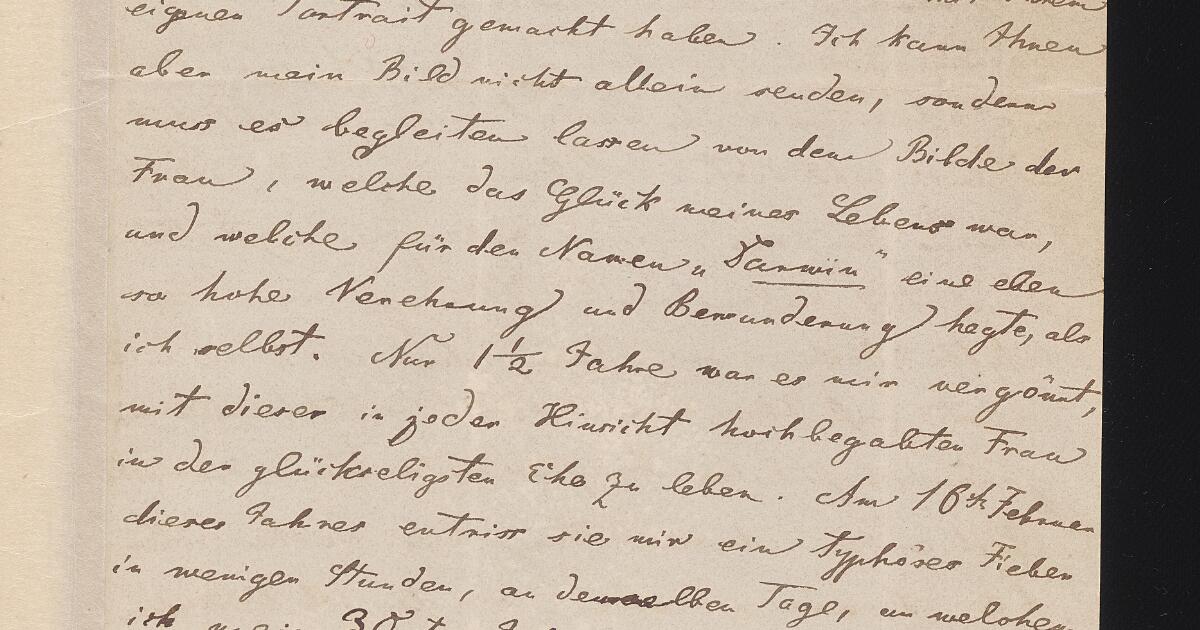 eigenen Portrait gemacht haben. Ich kann Ihnen
aber mein Bild nicht allein senden, sondern
muss es begleiten lassen von dem Bilde der
Frau, welche das Glück meines Lebens war,
und welche für den Namen „Darwin" eine eben
so hohe Verehrung und Bewunderung hegte, als
ich selbst. Nur 1½ Jahre war es mir vergönnt,
mit dieser in jeder Hinsicht hochbegabten Frau
in der glückseligsten Ehe zu leben. Am 16ten Februar
dieses Jahres entriss sie mir ein typhöses Fieber
in wenigen Stunden, an demselben Tage, an welchem
ich mein 30